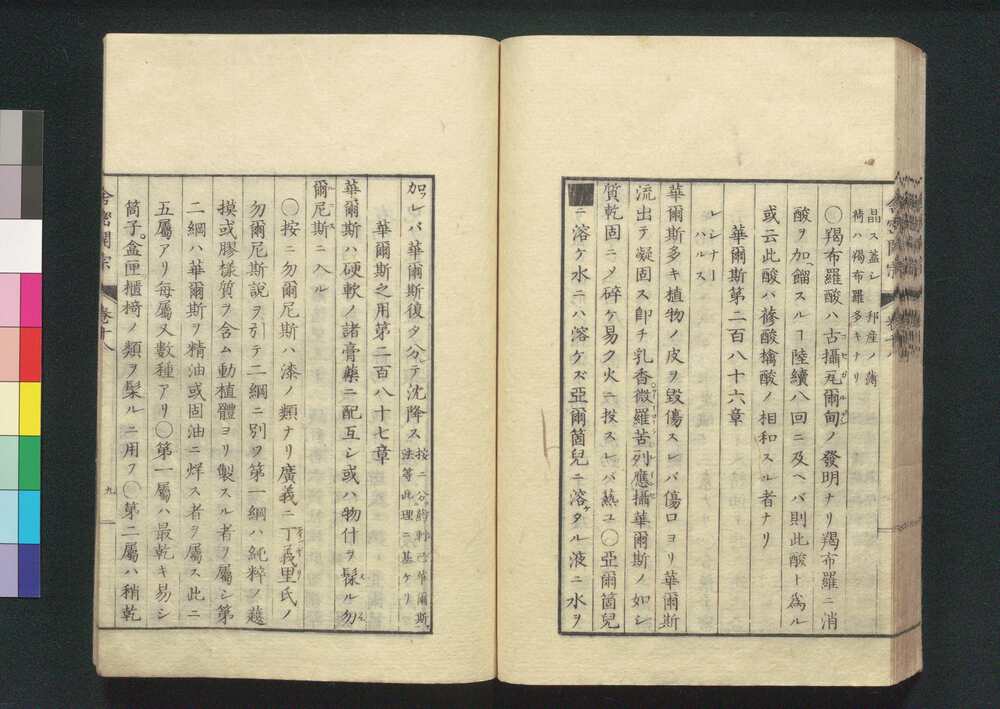 晶ス蓋シ邦産ノ薄
荷ハ羯布羅多キナリ
〇羯布羅酸ハ古攝瓦爾甸ノ發明ナリ羯布羅ニ消
酸ヲ加餾スルヿ陸續八回ニ及ヘバ則此酸ト爲ル
或云此酸ハ蓚酸檎酸ノ相和スル者ナリ
華爾斯第二百八十六章
レシナー
ハルス
華爾斯多キ植物ノ皮ヲ毀傷スレバ傷口ヨリ華爾斯
流出テ凝固ス卽チ乳香微羅苦列應攝華爾斯ノ如シ
質乾固ニメ碎ケ易ク火ニ投スレバ熱ユ〇亞爾箇兒
ニ溶ケ水ニハ溶ケズ亞爾箇兒ニ溶タル液ニ水ヲ
加フレバ華爾斯復タ分テ沈降ス
法等此理ニ基ケリ
華爾斯之用第二百八十七章
華爾斯ハ硬軟ノ諸膏藥ニ配互シ或ハ物什ヲ髹ル勿
爾尼斯ニ入ル
〇按ニ勿爾尼斯ハ漆ノ類ナリ廣義ニ丁義里氏ノ
勿爾尼斯說ヲ引テ二綱ニ別ツ第一綱ハ純粹ノ越
摸或膠樣質ヲ含ム動植體ヨリ製スル者ヲ屬シ第
二綱ハ華爾斯ヲ精油或固油ニ烊ス者ヲ屬ス此ニ
五屬アリ每屬又數種アリ〇第一屬ハ最乾キ易シ
筒子。盒匣櫃椅ノ類ヲ髹ルニ用フ〇第二屬ハ稍乾
舍密開宗
卷十八
九